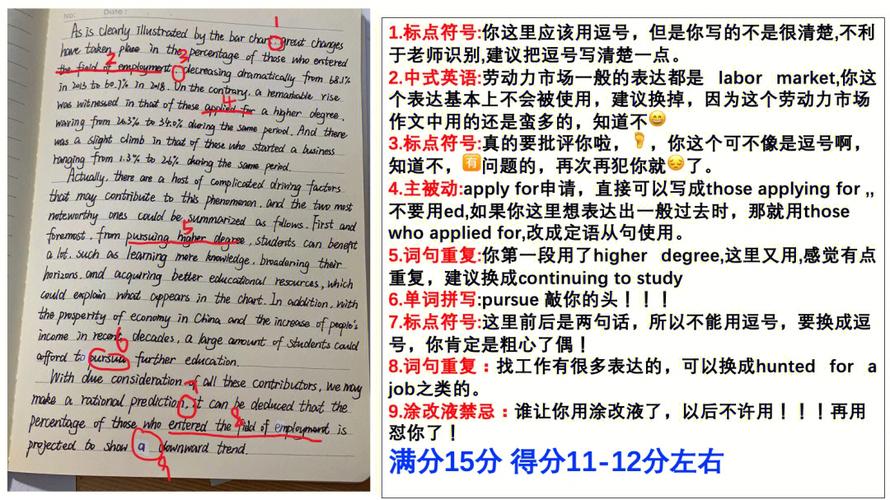 No:
Date:
As is clearly illustrated by the bar chart, great changes
have taken place in the percentage of those who entered
the field of employment, decreasing dramatically from 68.1%
in 2013 to 60.7% in 2018. On the contrary, a remarkable rise
was witnessed in that of those applied for a higher degree,
waving from 26.3% to 34.0% during the same period. And there
was a slight climb in that of those who started a business
ranging from 1.3% to 2.6% during the same period.
Actually, there are a host of complicated driving factors
that may contribute to this phenomenon, and the two most
noteworthy ones could be summarized as follows. First and
foremost, from pursuing higher degree, students can benefit
a lot, such as learning more knowledge, broadening their
horizons, and acquiring better educational resources, which
could explain what appears in the chart. In addition, with
the prosperity of economy in China and the increase of people's
income in recent decades, a large amount of students could
afford to pursua further education.
With due consideration of all these contributors, we may
make a rational prediction, it can be deduced that the
percentage of those who entered the field of employment is
projected to show a downward trend.
1
2
3
4
5
6
7
8
9
1.标点符号:你这里应该用逗号，但是你写的不是很清楚,不利
于老师识别,建议把逗号写清楚一点。
2.中式英语:劳动力市场一般的表达都是 labor market,你这
个表达基本上不会被使用，建议换掉，因为这个劳动力市场
作文中用的还是蛮多的，知道不😄
3.标点符号:真的要批评你啦，🦶，你这个可不像是逗号啊，
知道不，🈶问题的，再次再犯你就😔了。
4.主被动:apply for申请，直接可以写成those applying for ,,
不要用ed,如果你这里想表达出一般过去时，那就用those
who applied for,改成定语从句使用。
5.词句重复:你第一段用了higher degree,这里又用,感觉有点
重复，建议换成continuing to study
6.单词拼写:pursue 敲你的头！！！
7.标点符号:这里前后是两句话，所以不能用逗号，要换成逗
号，你肯定是粗心了偶！
8.词句重复：找工作有很多表达的，可以换成hunted for a
job之类的。
9.涂改液禁忌：谁让你用涂改液了，以后不许用！！！再用
怼你了！
满分15分 得分11-12分左右